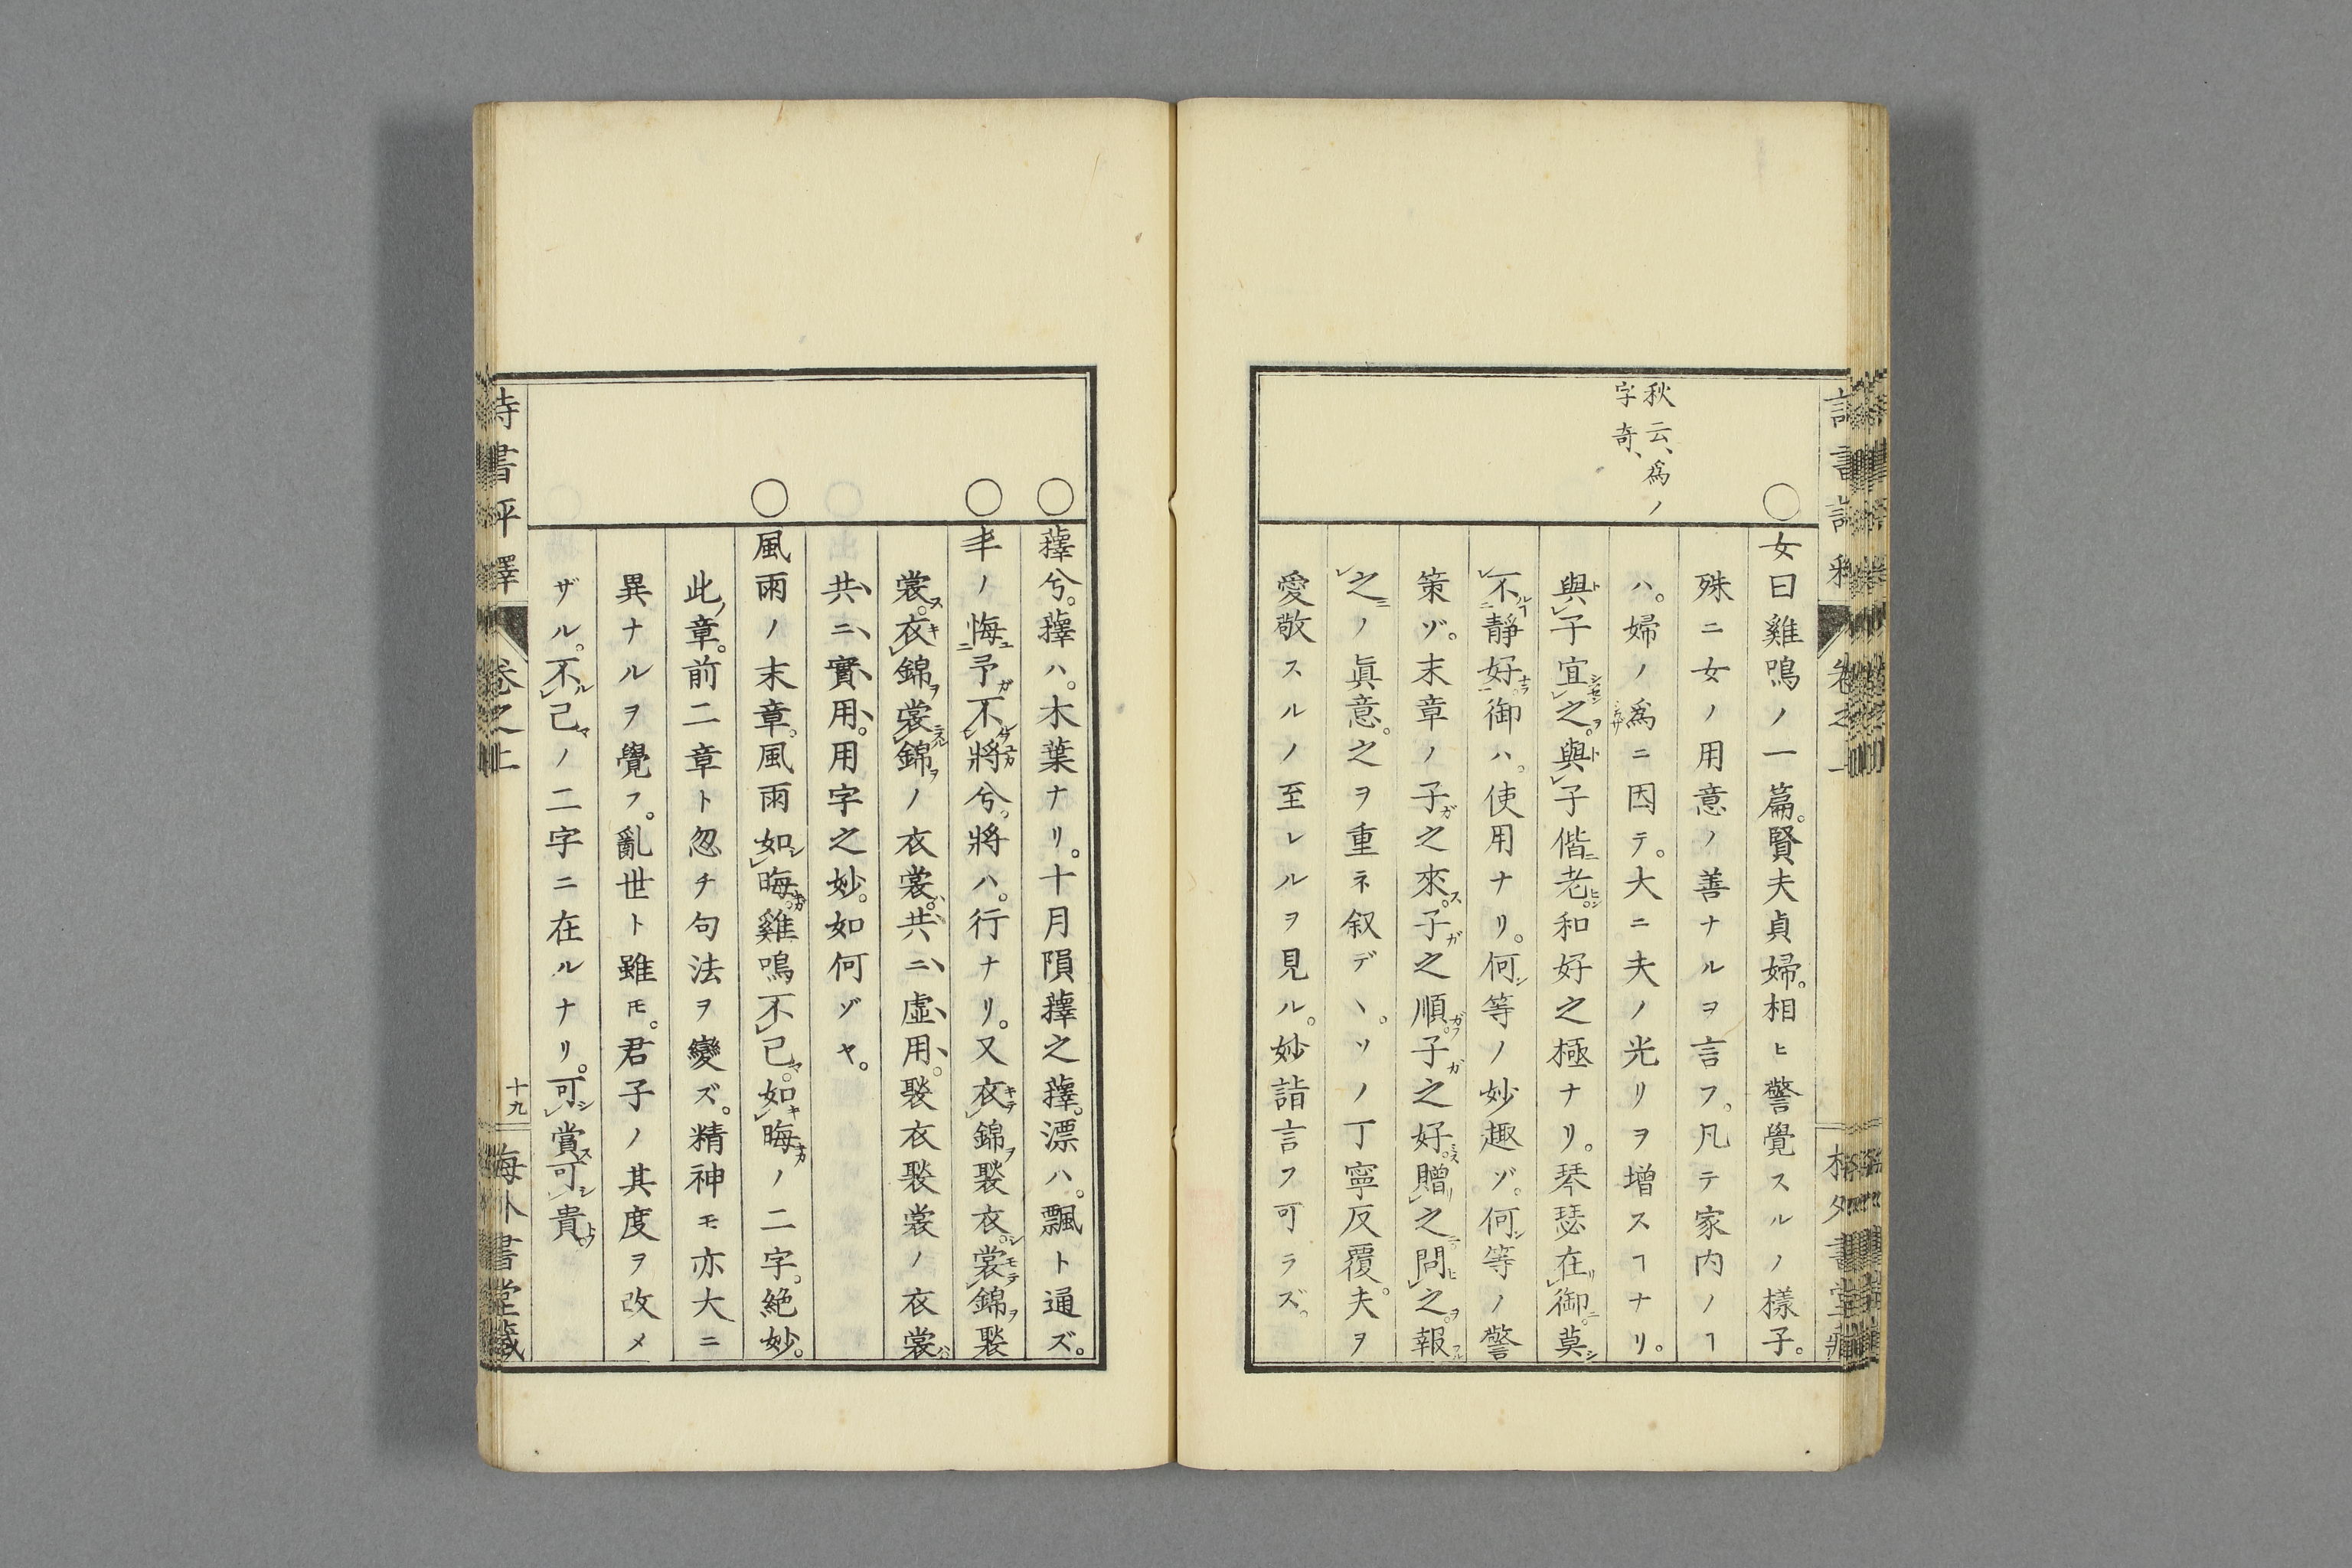 秋云、爲ノ
字奇、
○女曰雞鳴ノ一篇。賢夫貞婦。相ヒ警覺スルノ樣子。
殊ニ女ノ用意ノ善ナルヲ言フ。凡テ家内ノヿ
ハ。婦ノ爲ニ因テ。大ニ夫ノ光リヲ增スヿナリ。
與子宜之。與子偕老。和好之極ナリ。琴瑟在御。莫
不靜好。御ハ。使用ナリ。何等ノ妙趣ゾ。何等ノ警
策ゾ。末章ノ子之來。子之順。子之好。贈之問之。報
之ノ眞意。之ヲ重ネ叙デヽ。ソノ丁寧反覆。夫ヲ
愛敬スルノ至レルヲ見ル。妙詣言フ可ラズ。
○蘀兮。蘀ハ。木葉ナリ。十月隕蘀之蘀。漂ハ。飄ト通ズ。
○丰ノ悔予不將兮。將ハ。行ナリ。又衣錦褧衣。裳錦褧
裳。衣錦裳錦ノ衣裳。共ニ虛用。褧衣褧裳ノ衣裳
共ニ實用。用字之妙。如何ゾヤ。
○風雨ノ末章。風雨如晦。雞鳴不已。如晦ノ二字。絶妙。
此章。前二章ト忽チ句法ヲ變ズ。精神モ亦大ニ
異ナルヲ覺フ。亂世ト雖モ。君子ノ其度ヲ改メ
ザル。不已ノ二字ニ在ルナリ。可賞可貴。
詩書評釋 卷之上 十九 海外書堂藏